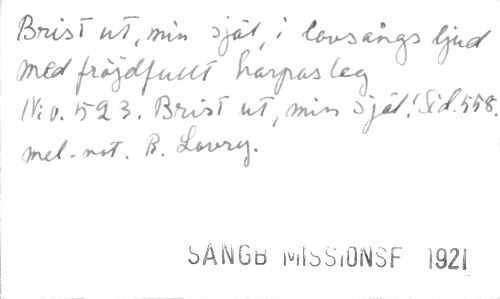 Brist ut, min själ, i lovsångs ljud
med fröjdfullt harpas leg
N:o. 523. Brist ut, min själ! Sid. 558.
mel.-not. R. Lowry.
SANGB MISSIONSF 1921